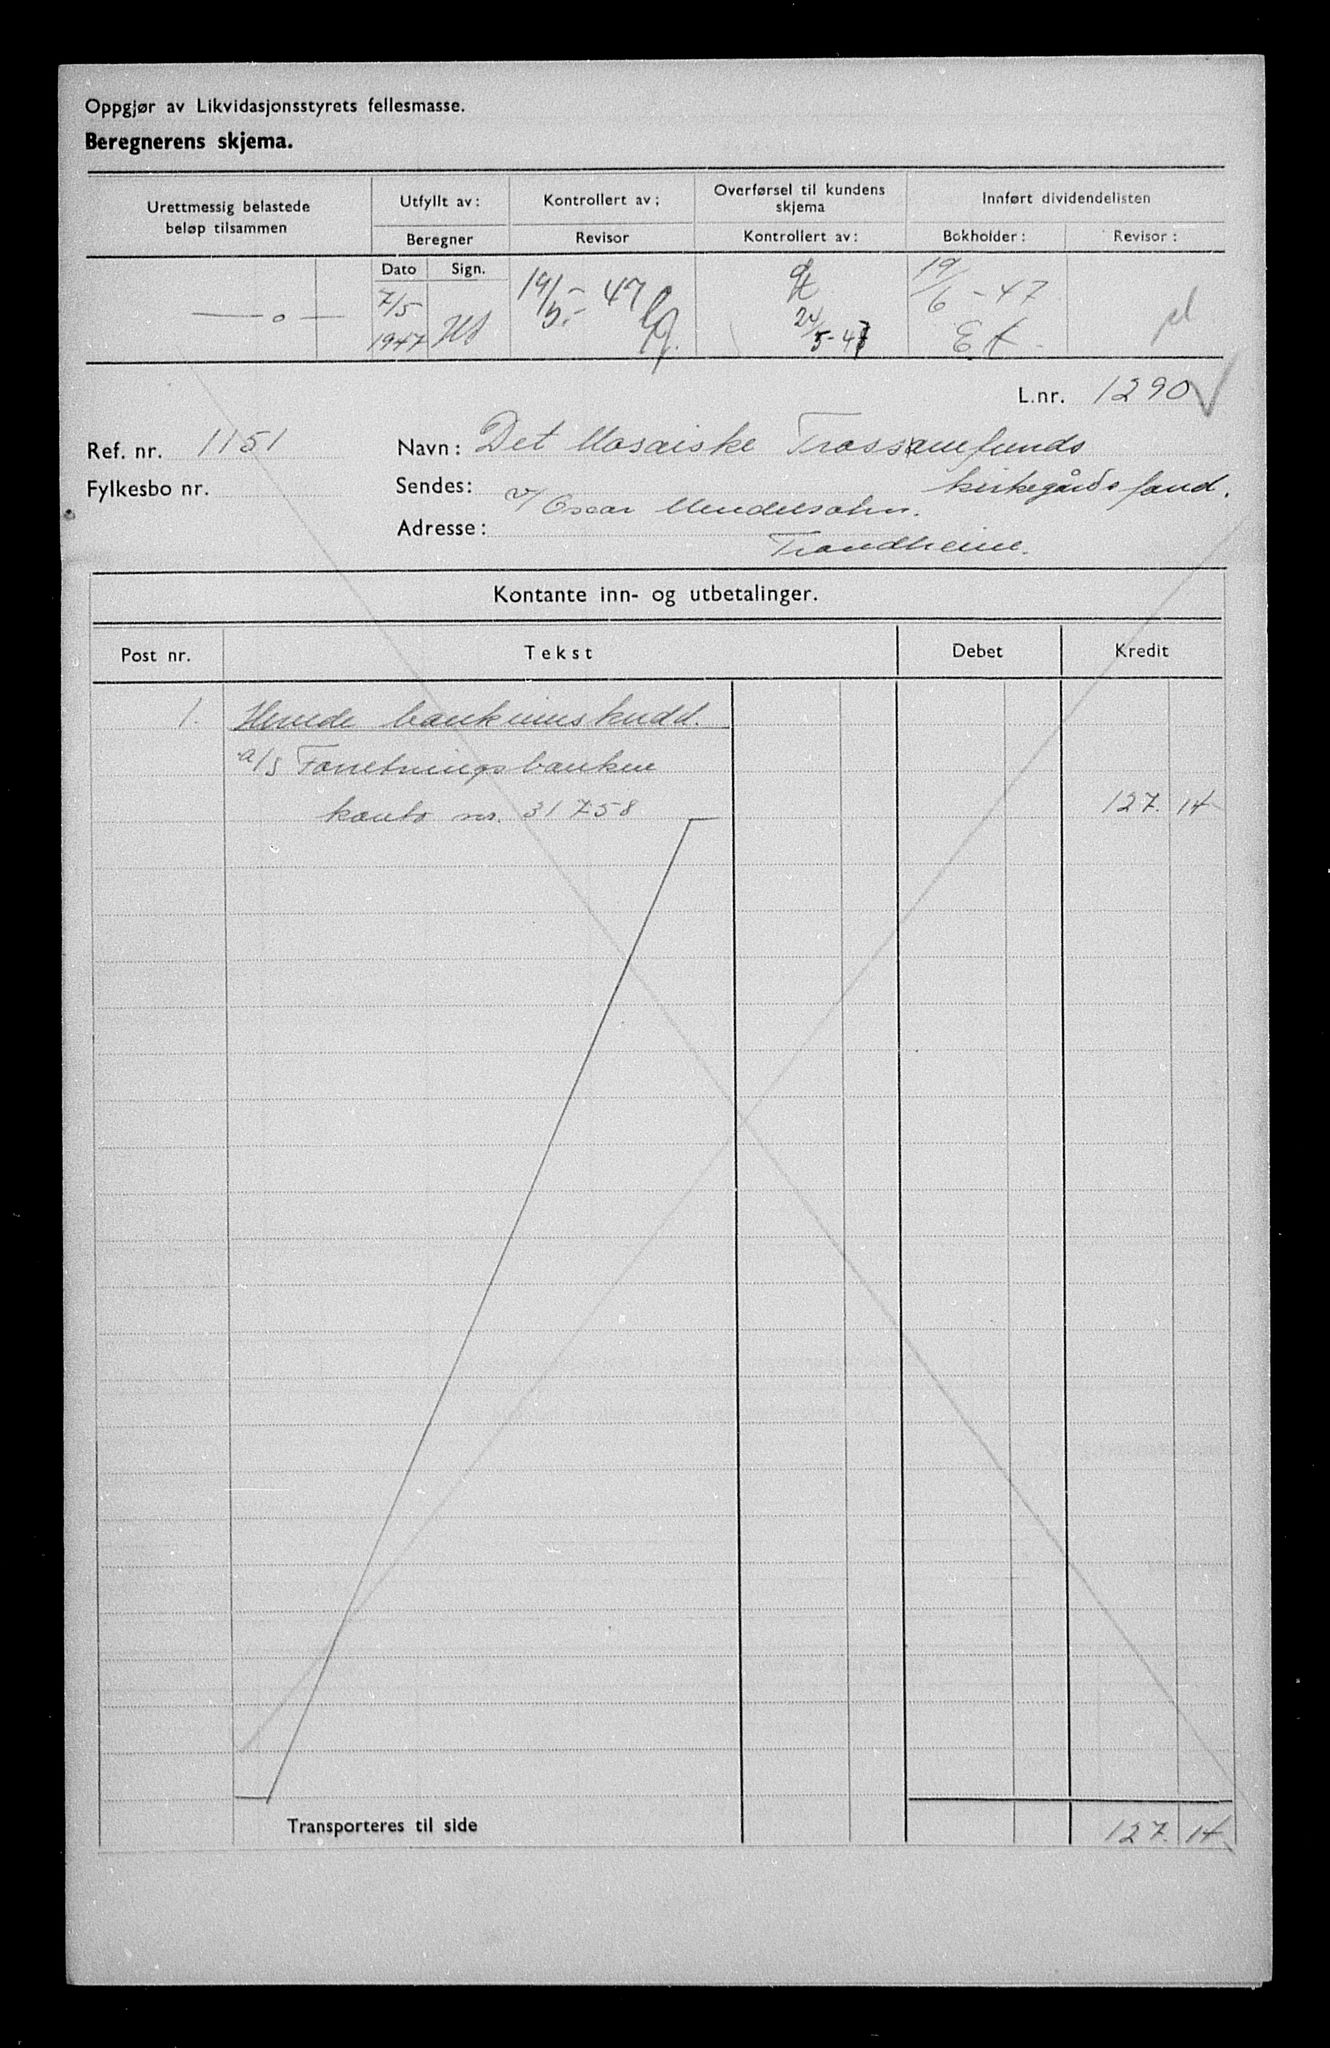 Oppgjør av Likvidasjonsstyrets fellesmasse.
Beregnerens skjema.
Urettmessig belastede beløp tilsammen
Utfyllt av:
Beregner
Dato Sign.
Kontrollert av;
Revisor
Overførsel til kundens skjema
Kontrollert av:
Innført dividendelisten
Bokholder:
Revisor:
— o —
7/5 1947
19/5.- 47
24/5-47
19/6-47
L.nr. 1290
Ref. nr. 1151
Navn: Det Mosaiske Trossamfunds
Fylkesbo nr.
Sendes:
kirkegårdsfond.
v/ Oscar Mendelsohn.
Adresse:
Trondheim.
Kontante inn- og utbetalinger.
Post nr. Tekst Debet Kredit
1. Hevede bankinnskudd.
a/s Forretningsbanken
konto nr. 31758 127. 14
Transporteres til side 127. 14